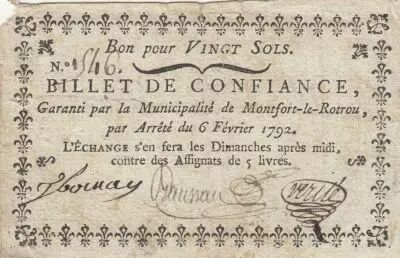 Bon pour VINGT SOLS.
N.º 1546.
BILLET DE CONFIANCE,
Garanti par la Municipalité de Montfort-le-Rotrou,
par Arrêté du 6 Février 1792.
L'ÉCHANGE s'en fera les Dimanches après midi,
contre des Assignats de 5 livres.
verité